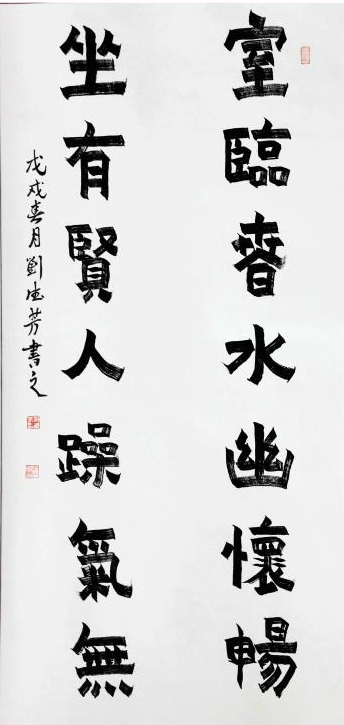 室臨春水幽懷暢
坐有賢人躁氣無
戊戌春月劉德芳書之